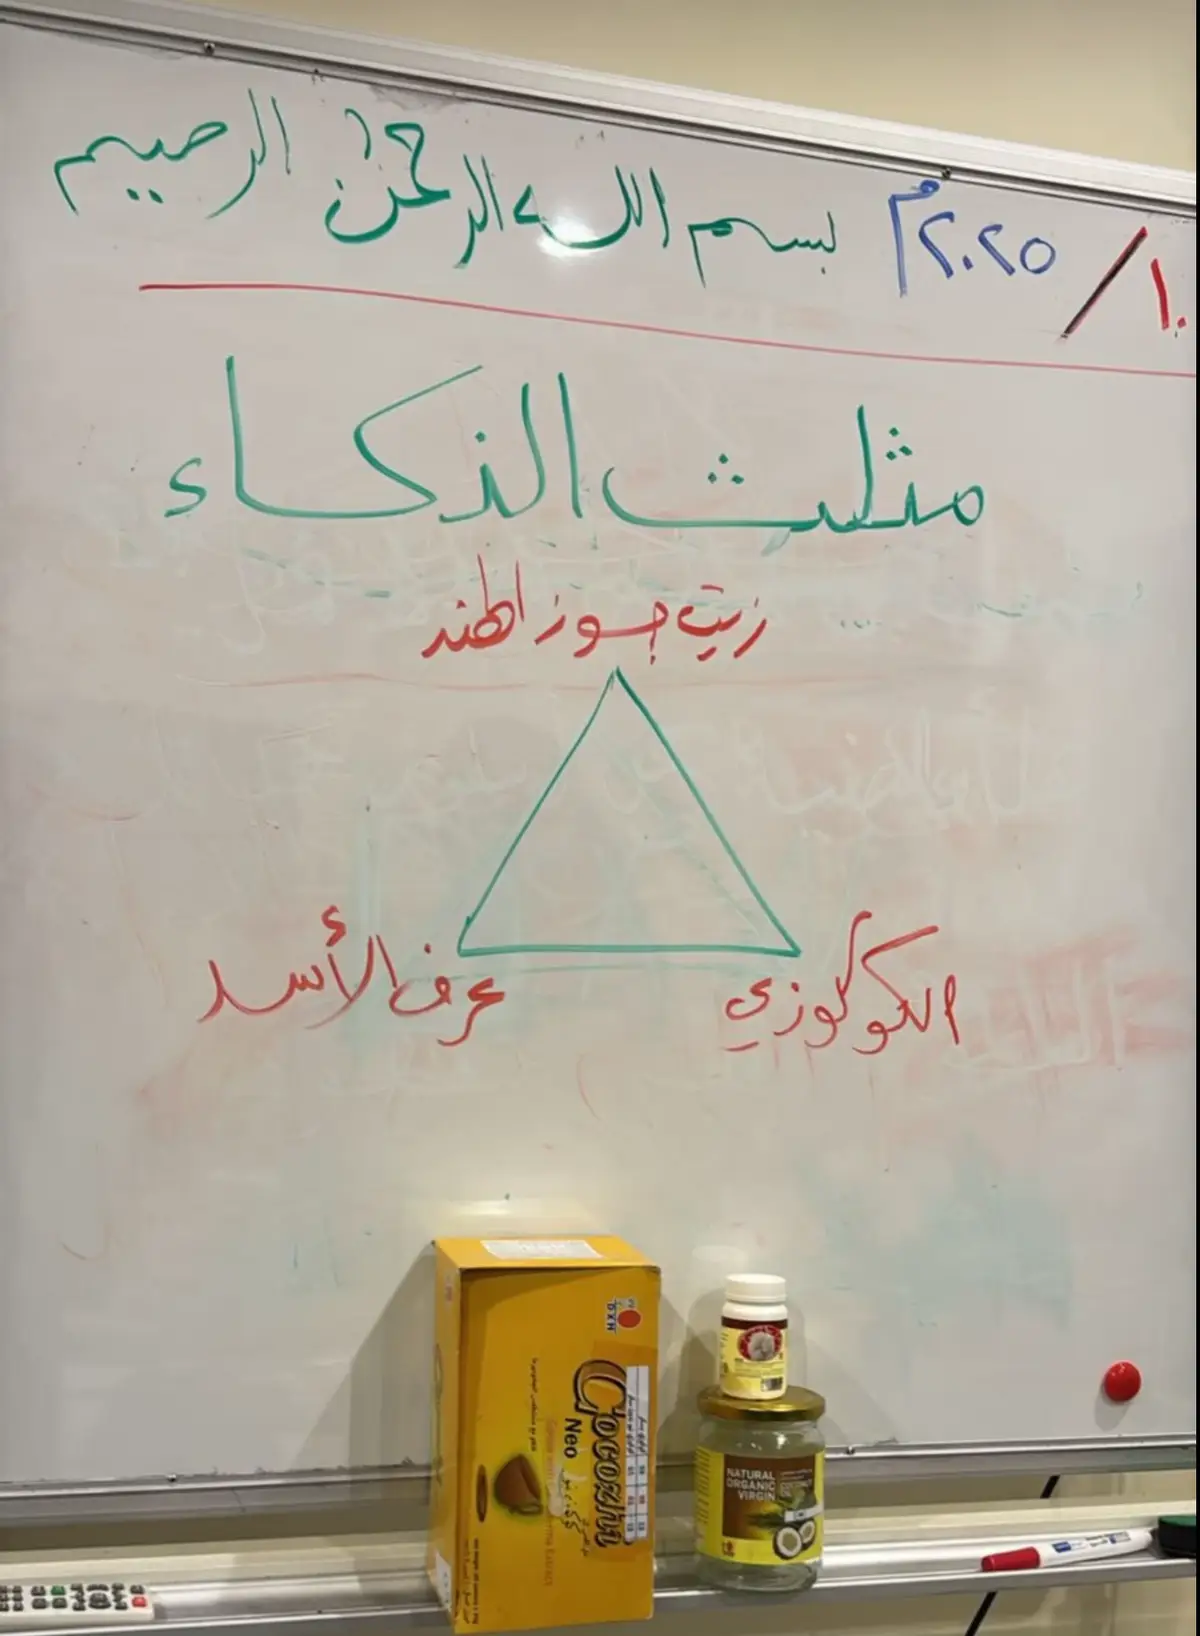 ١٠/ ٢٠٢٥م
بسم الله الرحمن الرحيم
مثلث الذكاء
زيت جوز الهند
الكوكوزي
عرف الأسد
DXN
Cocozhi
Neo
NATURAL
ORGANIC
VIRGIN
COCONUT
OIL